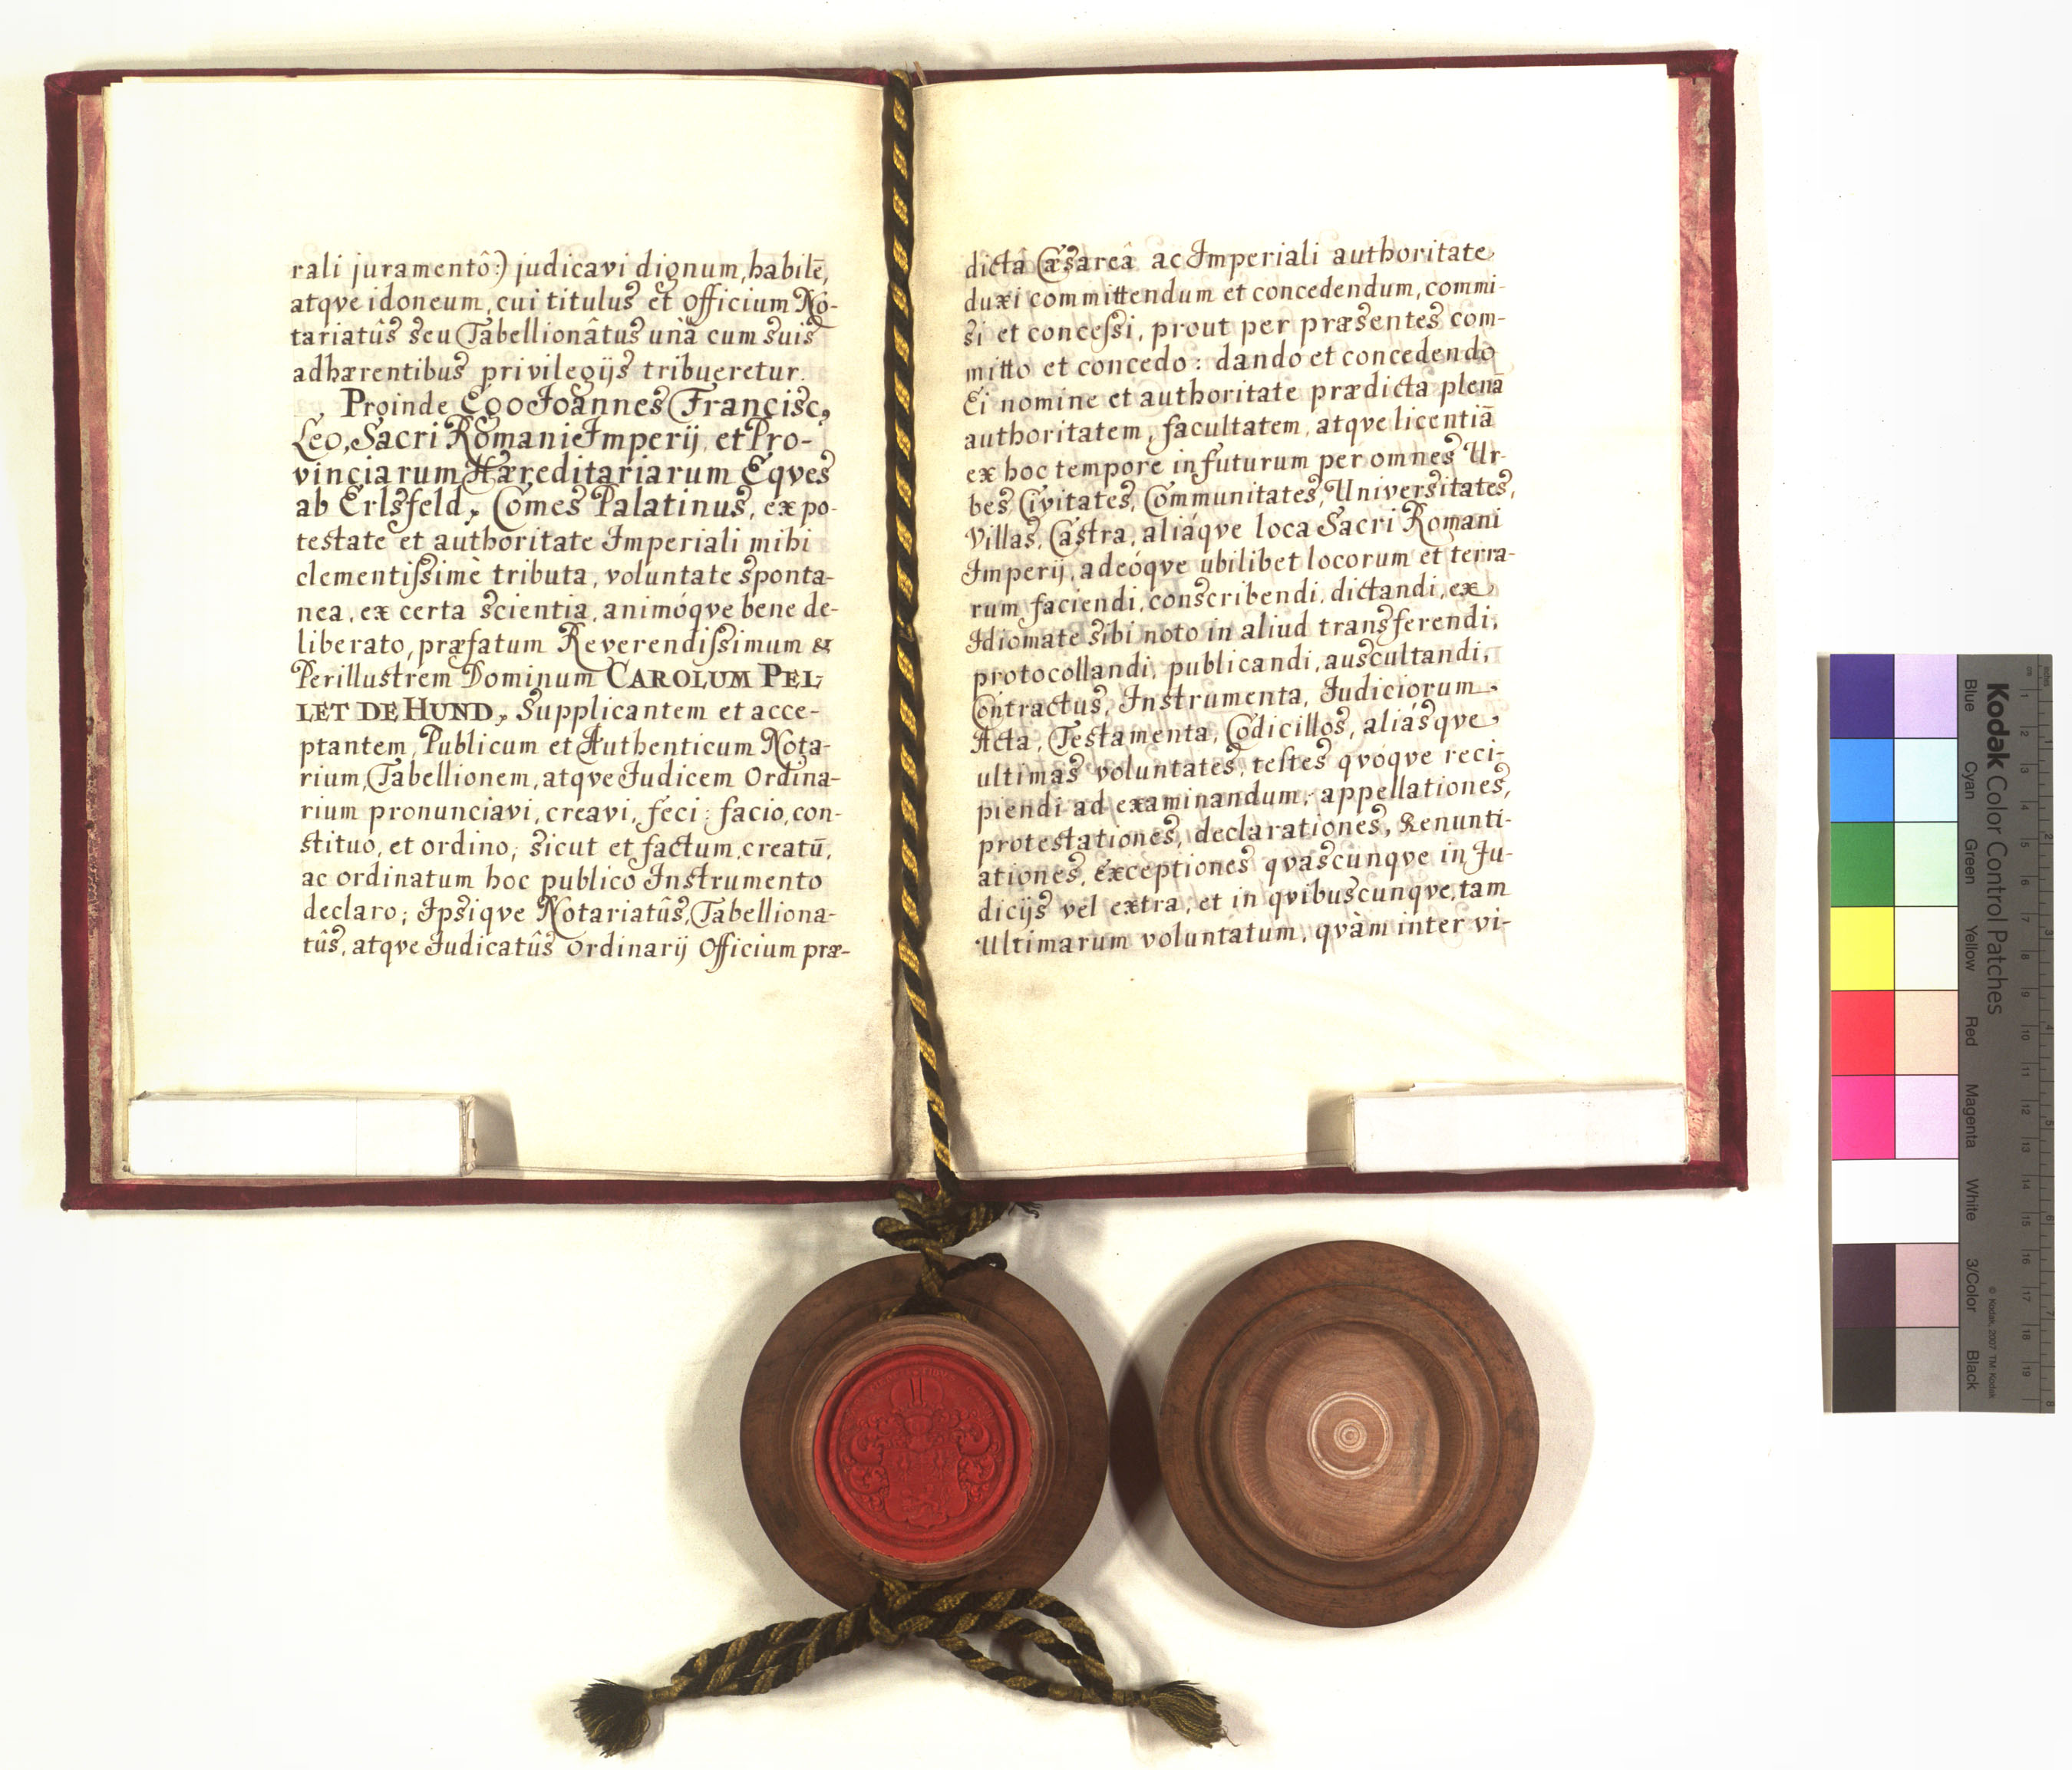 rali juramentô:) judicavi dignum, habilē,
atqve idoneum, cui titulus et Officium No-
tariatûs seu Tabellionâtus unà cum suis
adhærentibus privilegijs tribueretur.
Proinde Ego Joannes Francisc9
Leo, Sacri Romani Imperij, et Pro-
vinciarum Hæreditariarum Eqves
ab Erlsfeld, Comes Palatinus, ex po-
testate et authoritate Imperiali mihi
clementissimè tributa, voluntate sponta-
nea, ex certa scientia, animóqve bene de-
liberato, præfatum Reverendissimum &
Perillustrem Dominum CAROLUM PEL-
LET DE HUND, Supplicantem et acce-
ptantem, Publicum et Authenticum Nota-
rium, Tabellionem, atqve Judicem Ordina-
rium pronunciavi, creavi, feci: facio, con-
stituo, et ordino, sicut et factum, creatū,
ac ordinatum hoc publico Instrumento
declaro; Ipsiqve Notariatûs, Tabelliona-
tûs, atqve Judicatûs Ordinarij Officium præ-
dictâ Cæsareâ ac Imperiali authoritate
duxi committendum et concedendum, commi-
si et concessi, prout per præsentes com-
mitto et concedo: dando et concedendo
Ei nomine et authoritate prædicta plenā
authoritatem, facultatem, atqve licentiā
ex hoc tempore in futurum per omnes Ur-
bes, Civitates, Communitates, Universitates,
Villas, Castra, aliáqve loca Sacri Romani
Imperij, adeóqve ubilibet locorum et terra-
rum faciendi, conscribendi, dictandi, ex
Idiomate sibi noto in aliud transferendi,
protocollandi, publicandi, auscultandi,
Contractus, Instrumenta, Judiciorum
Acta, Testamenta, Codicillos, aliásqve
ultimas voluntates, testes qvoqve reci-
piendi ad examinandum, appellationes,
protestationes, declarationes, Renunti-
ationes, exceptiones qvascunqve in Ju-
dicijs vel extra, et in qvibuscunqve, tam
Ultimarum voluntatum, qvàm inter vi-
Kodak Color Control Patches
Blue Cyan Green Yellow Red Magenta White 3/Color Black
© Kodak, 2007 TM: Kodak
1 2 3 4 5 6 7 8 9 10 11 12 13 14 15 16 17 18 19
1 2 3 4 5 6 7 8